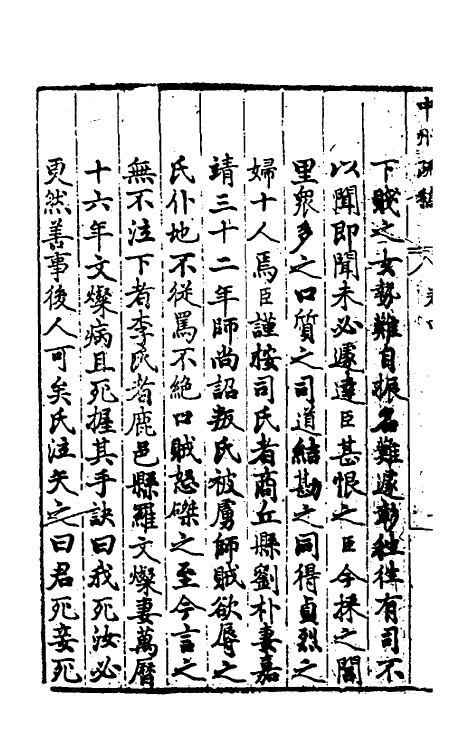 下賤之女勢難自振名難遽彰往往有司不
以聞即聞未必遽達臣甚恨之臣今採之閭
里衆多之口質之司道結勘之同得貞烈之
婦十人焉臣謹按司氏者商丘縣劉朴妻嘉
靖三十二年師尚詔叛氏被虜師賊欲辱之
氏仆地不從罵不絶口賊怒磔之至今言之
無不泣下者李氏者鹿邑縣羅文燦妻萬曆
十六年文燦病且死握其手訣曰我死汝必
更然善事後人可矣氏泣矢之曰君死妾死